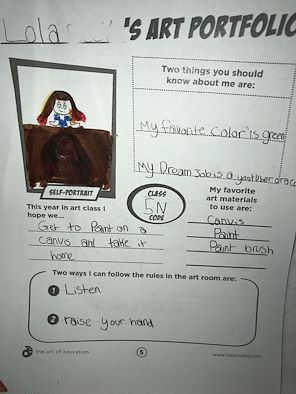 Lola
'S ART PORTFOLIO
Two things you should
know about me are:
My favorite color is green
My Dream job is a youtuber or a
SELF-PORTRAIT
CLASS
5N
CODE
My favorite
art materials
to use are:
Canvis
Paint
Paint brush
This year in art class I
hope we...
Get to Paint on a
canvis and take it
home
Two ways I can follow the rules in the art room are:
1 Listen
2 raise your hand
the art of education
5
www.theartofed.com